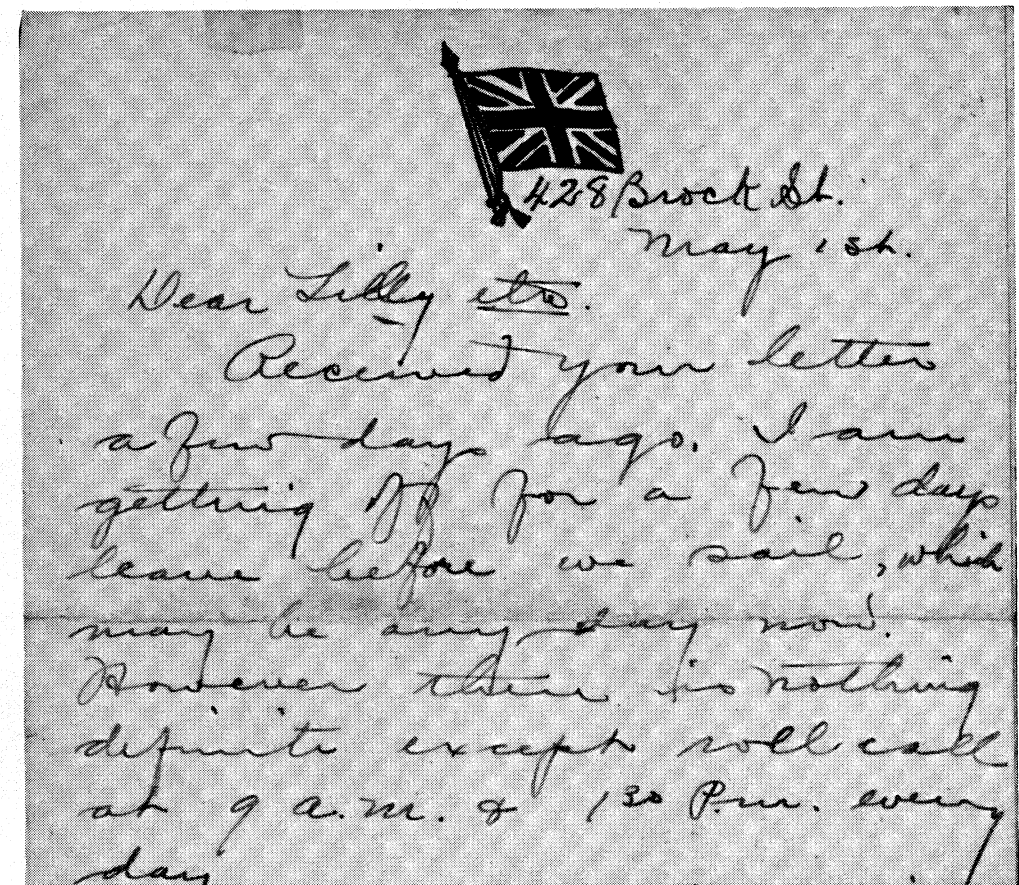 428 Brock St.
May 1st.
Dear Lilly etc.
Received your letter
a few days ago. I am
getting off for a few days
leave before we sail, which
may be any day now.
However there is nothing
definite except roll call
at 9 a.m. & 1 30 P.m. every
day